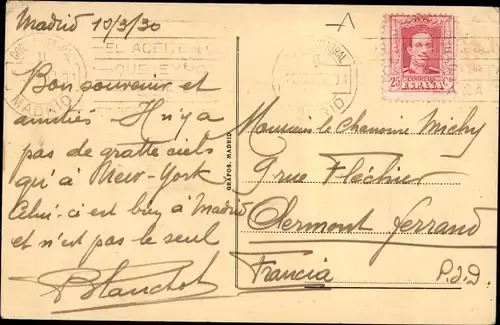 Madrid 10/3/30
EL ACEITE
QUE EXPO
MADRID
Bon souvenir et
amitiés. Il n'y a
pas de gratte ciels
qu'à New-York
Celui-ci est bien à Madrid
et n'est pas le seul
Blanchot
GRAFOS. MADRID
CORREOS
25 ESPAÑA
Monsieur le Chanoine Michy
9 rue Fléchier
Clermont ferrand
Francia P.d.D.